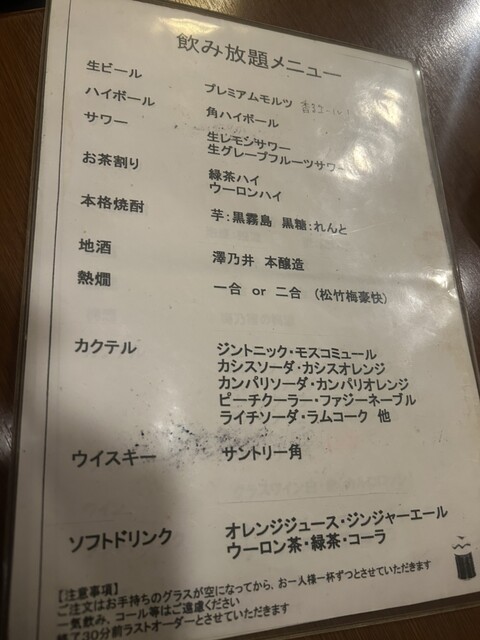 飲み放題メニュー
生ビール プレミアムモルツ
ハイボール 角ハイボール
サワー 生レモンサワー
生グレープフルーツサワー
お茶割り 緑茶ハイ
ウーロンハイ
本格焼酎 芋:黒霧島 黒糖:れんと
地酒 澤乃井 本醸造
熱燗 一合 or 二合 (松竹梅豪快)
カクテル ジントニック・モスコミュール
カシスソーダ・カシスオレンジ
カンパリソーダ・カンパリオレンジ
ピーチクーラー・ファジーネーブル
ライチソーダ・ラムコーク 他
ウイスキー サントリー角
ソフトドリンク オレンジジュース・ジンジャーエール
ウーロン茶・緑茶・コーラ
【注意事項】
ご注文はお手持ちのグラスが空になってから、お一人様一杯ずつとさせていただきます
一気飲み、コール等はご遠慮ください
終了30分前ラストオーダーとさせていただきます